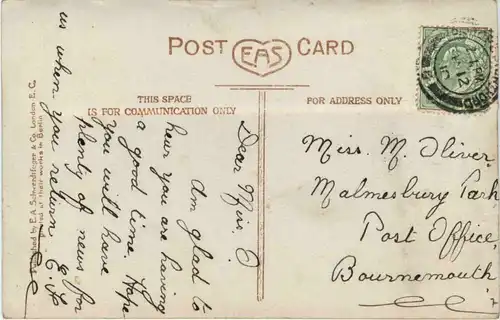 POST CARD
EAS
THIS SPACE
IS FOR COMMUNICATION ONLY
FOR ADDRESS ONLY
Dear Miss. O
Am glad to
hear you are having
a good time. Hope
you will have
plenty of news for
us when you return. E.S
Miss. M. Oliver
Malmesbury Park
Post Office
Bournemouth
by E.A. Schwerdtfeger & Co. London E.C.
at their works in Berlin
12